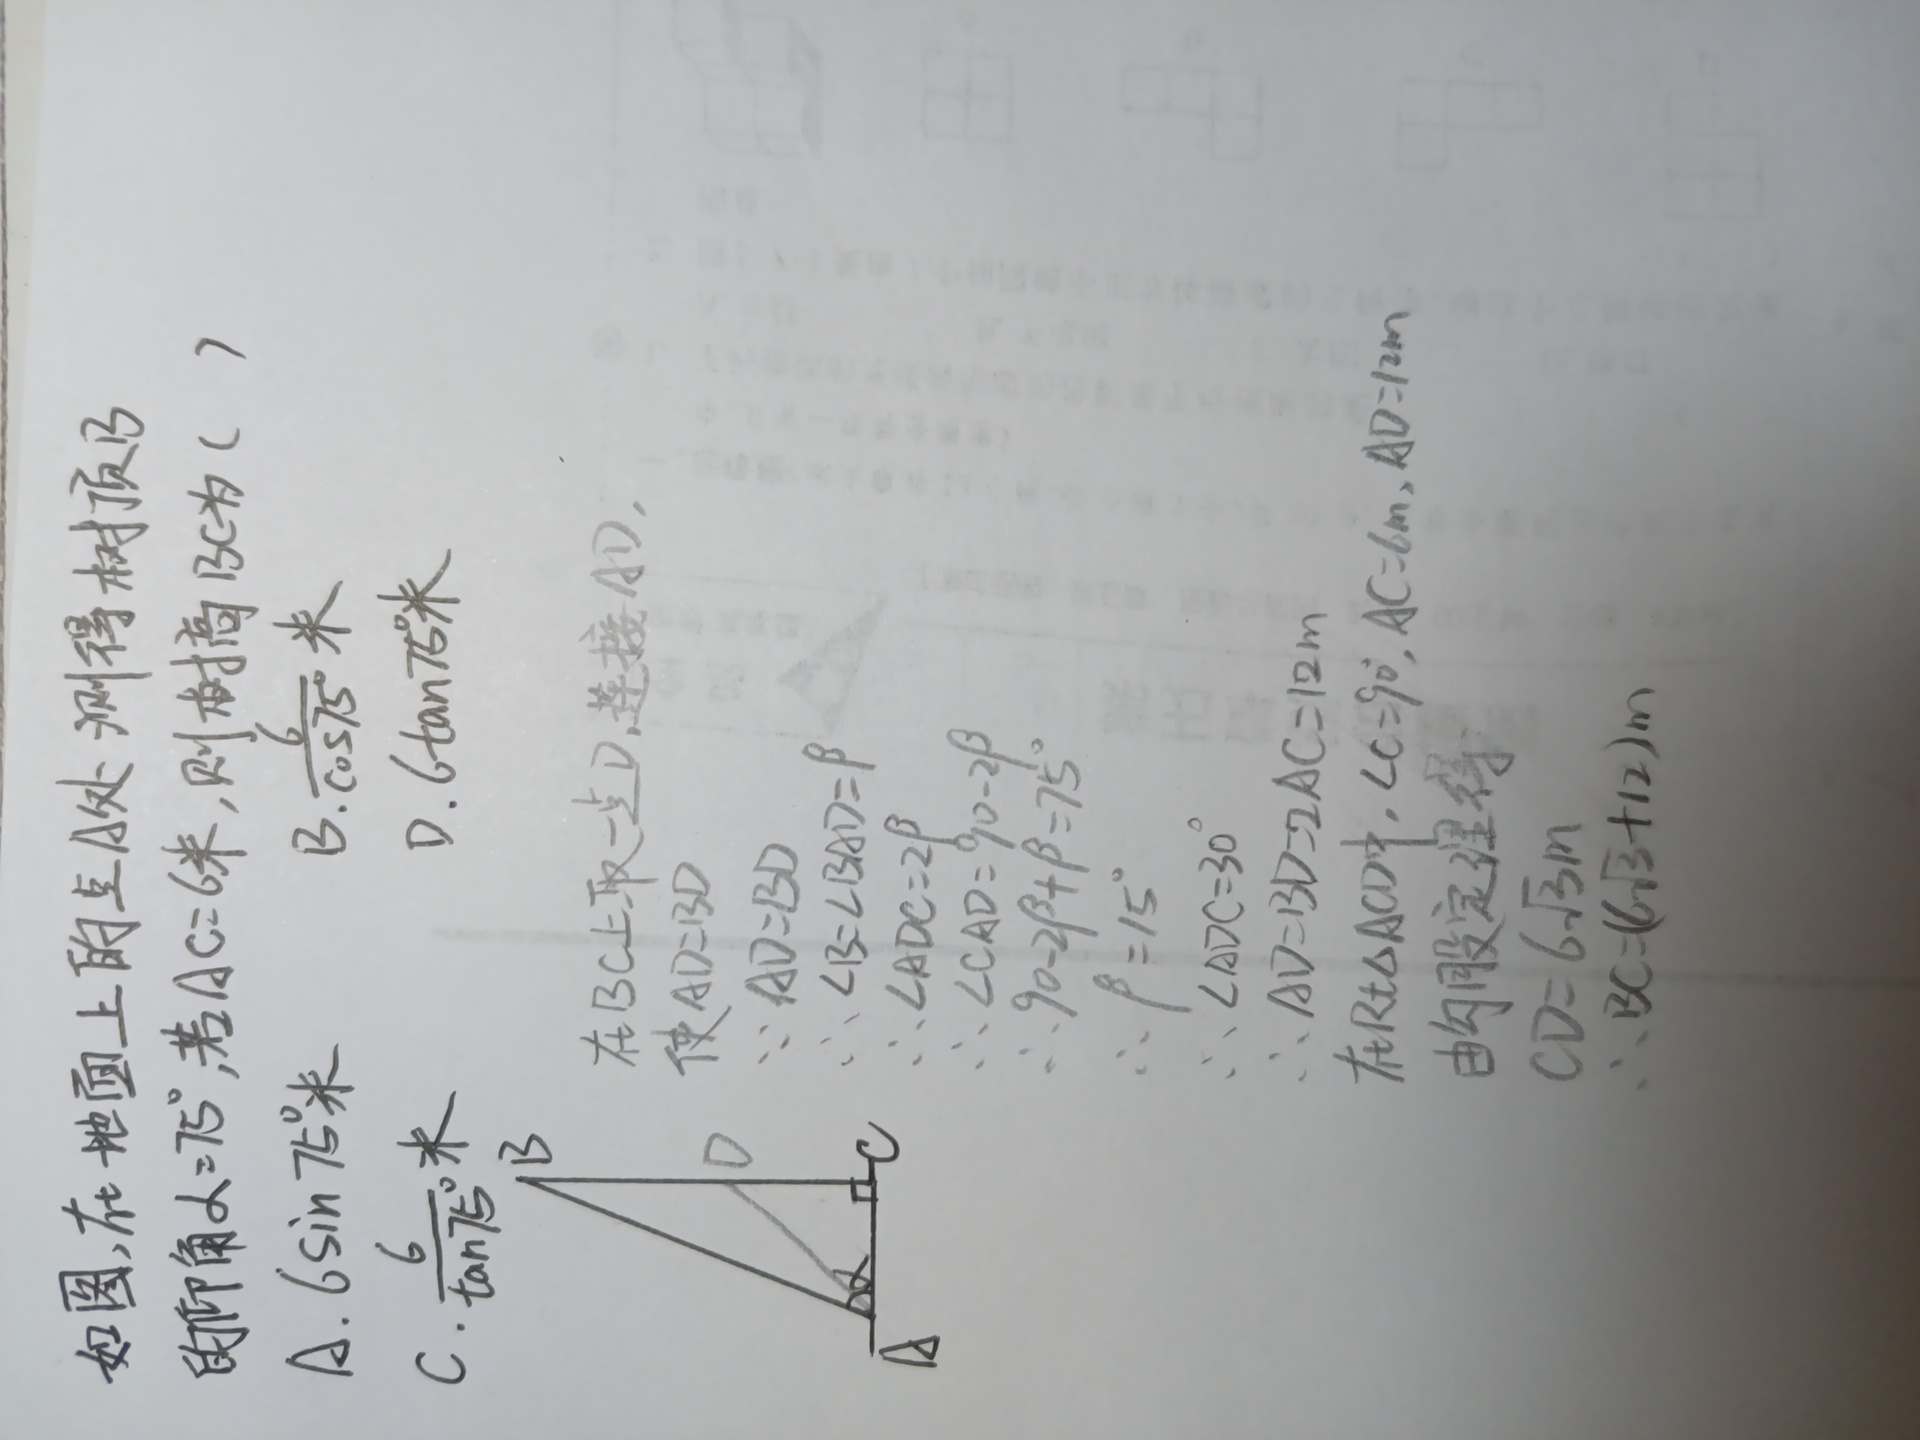 如图,在地面上的点A处测得树顶B
的仰角α=75°,若AC=6米,则树高BC为( )
A. 6sin75°米 B. 6/cos75° 米
C. 6/tan75° 米 D. 6tan75°米
B
D
α
A C
在BC上取一点D,连接AD,
使AD=BD
∵ AD=BD
∴ ∠B=∠BAD=β
∴ ∠ADC=2β
∴ ∠CAD=90-2β
∴ 90-2β+β=75°
∴ β=15°
∴ ∠ADC=30°
∴ AD=BD=2AC=12m
在Rt△ACD中, ∠C=90°, AC=6m, AD=12m
由勾股定理得
CD=6√3m
∴ BC=(6√3+12)m